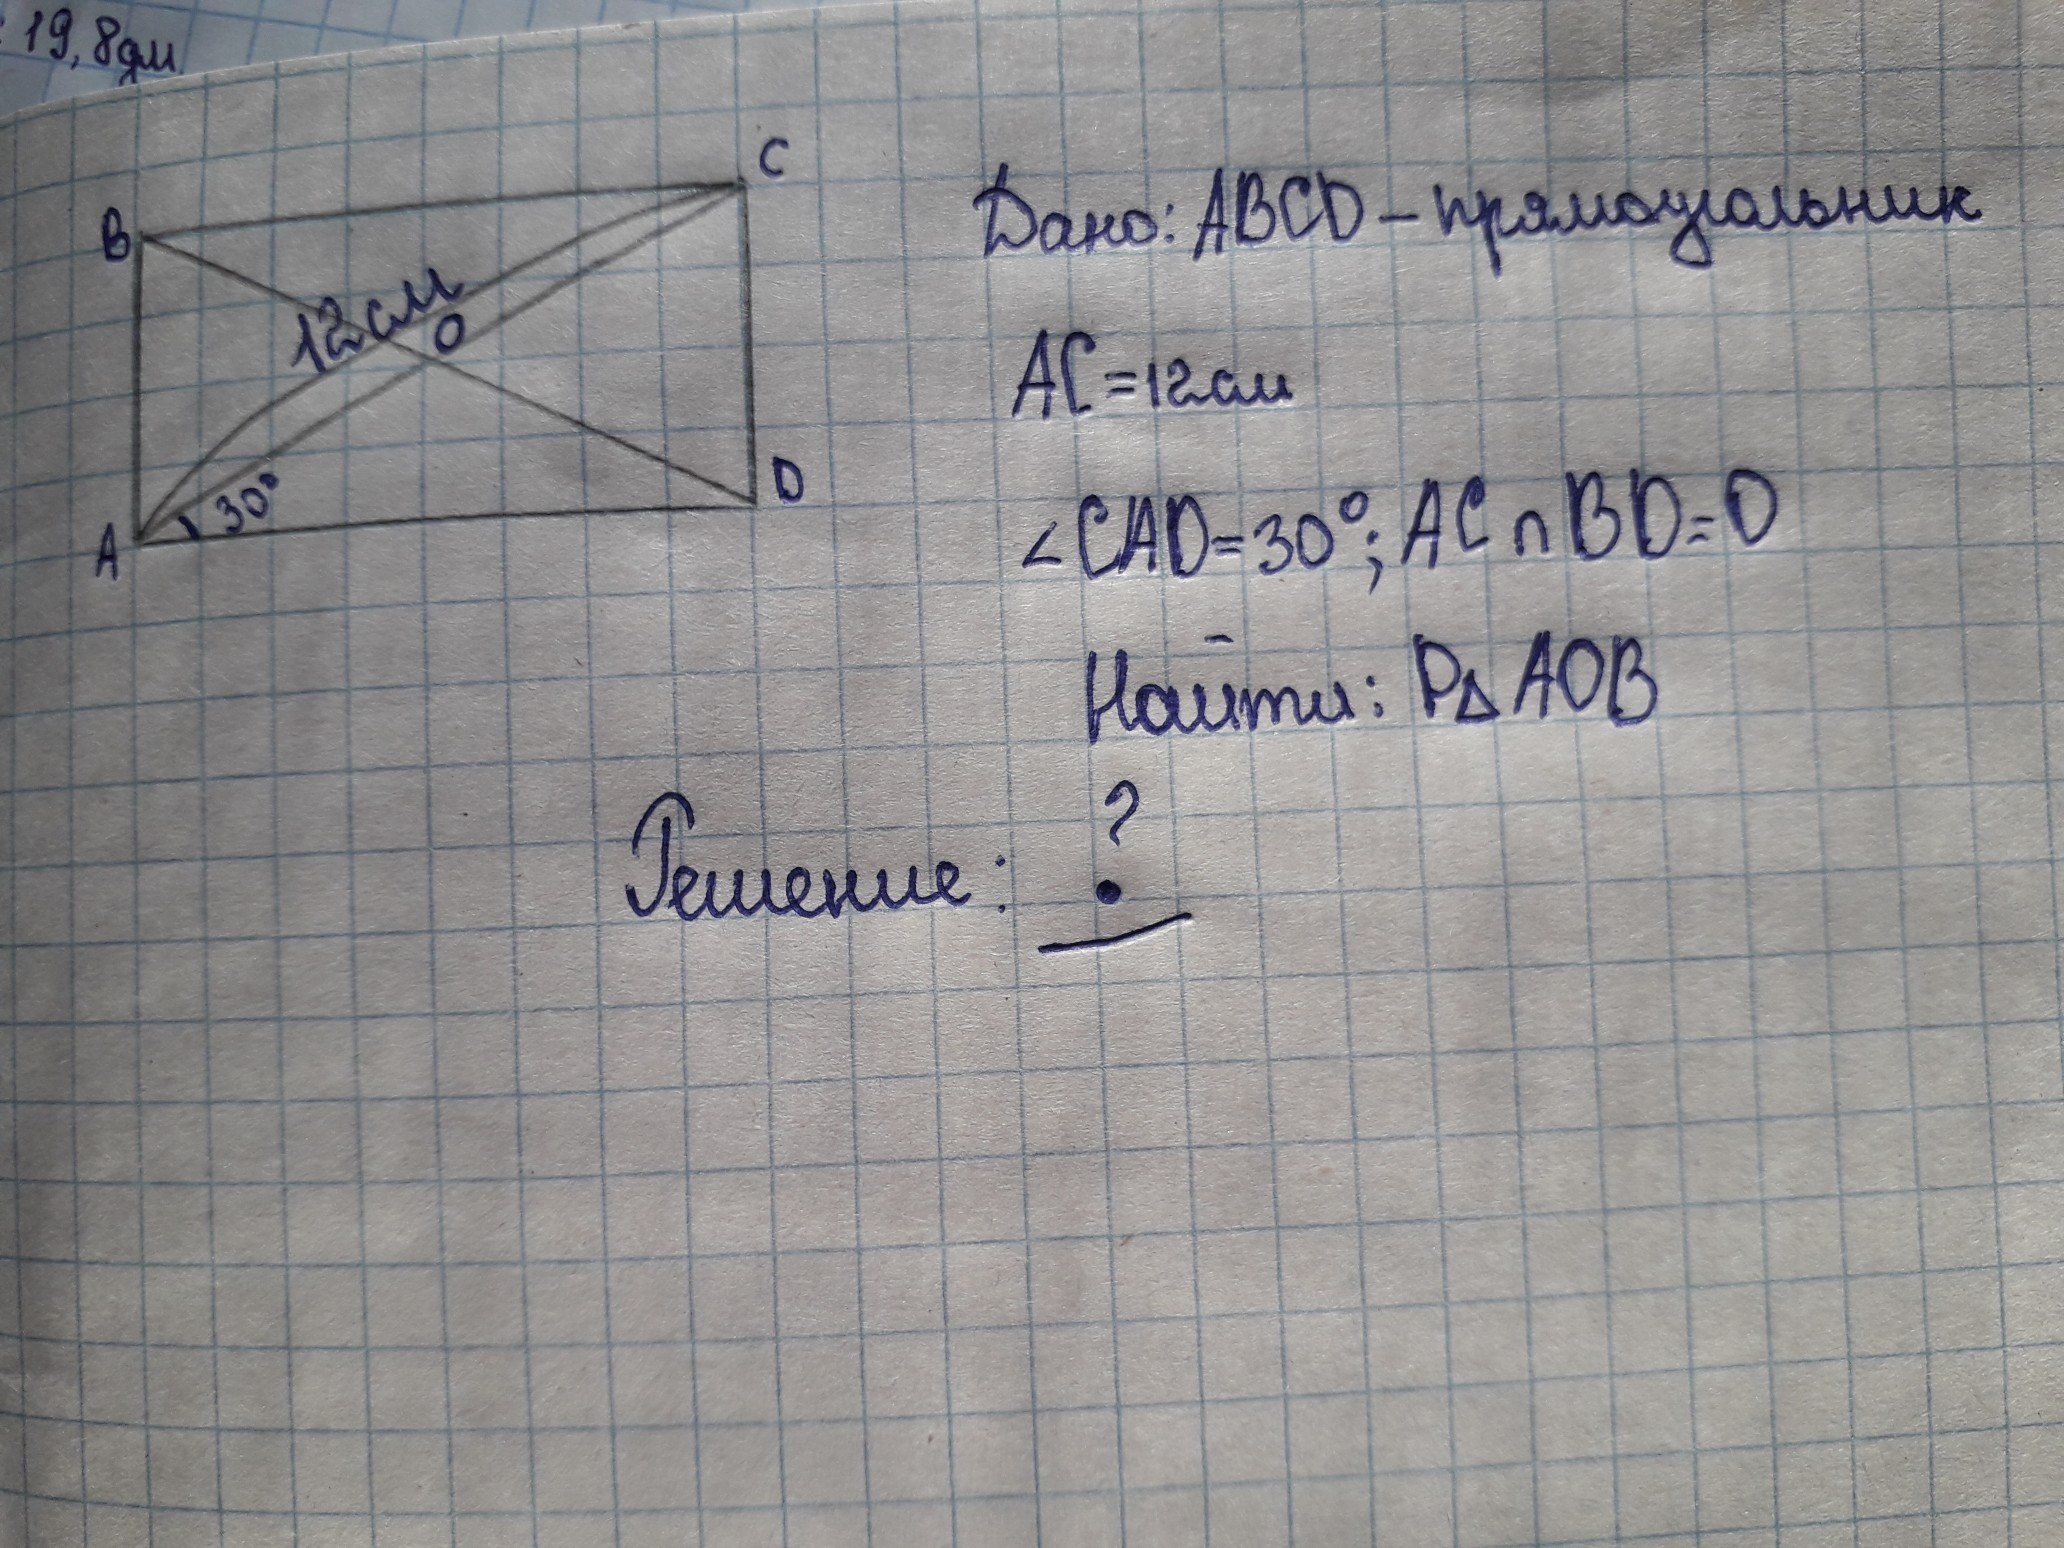 : 19,8дм
B
C
12см
O
30°
A
D
Дано: ABCD – прямоугольник
AC = 12см
∠CAD = 30°; AC ∩ BD = O
Найти: P∆ AOB
Решение: ?